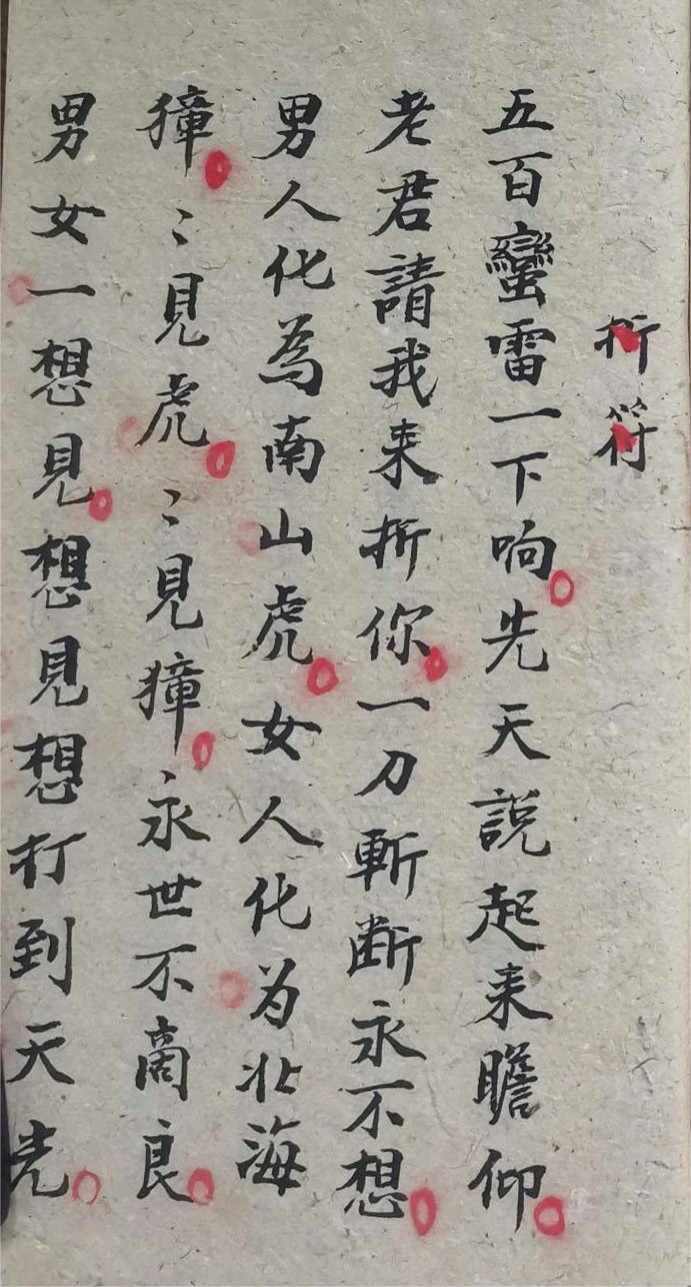 折符
五百蠻雷一下响先天説起来瞻仰
老君請我来折你一刀斬断永不想
男人化為南山虎女人化为北海
獐〻見虎〻見獐永世不啇良
男女一想見想見想打到天光